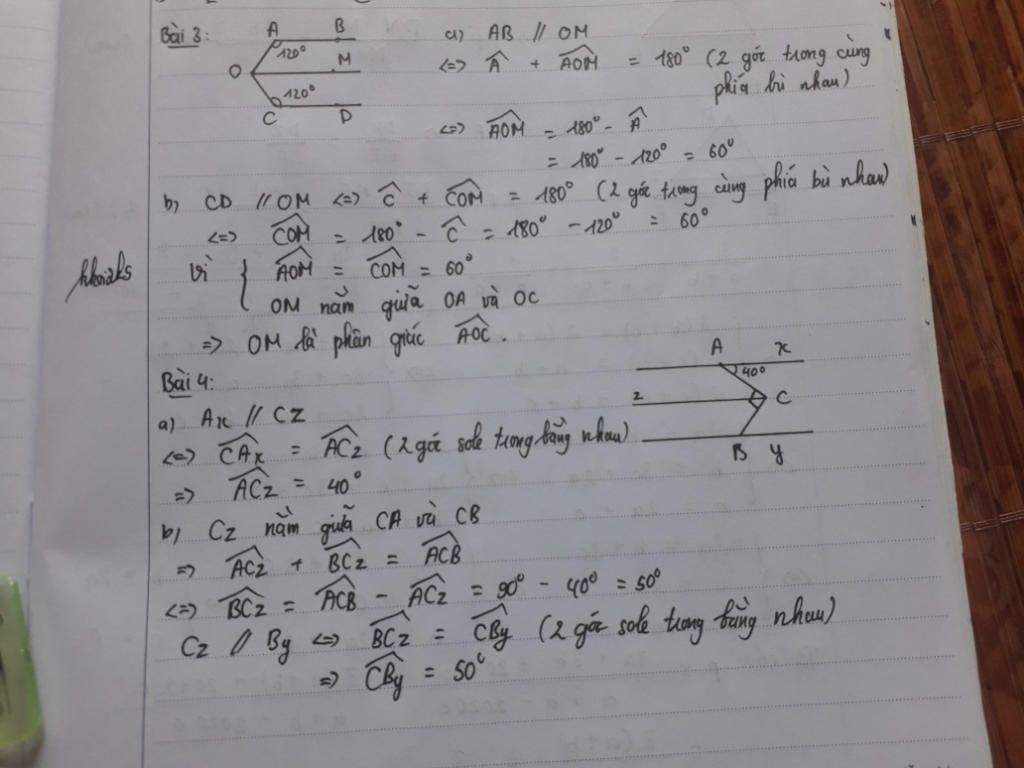 Bài 3:
A B
120° M
O
120°
C D
a) AB // OM
<=> Â + AOM = 180° (2 góc trong cùng
phía bù nhau)
<=> AOM = 180° - Â
= 180° - 120° = 60°
b) CD // OM <=> Ĉ + COM = 180° (2 góc trong cùng phía bù nhau)
<=> COM = 180° - Ĉ = 180° - 120° = 60°
Vì { AOM = COM = 60°
OM nằm giữa OA và OC
=> OM là phân giác AOC.
Bài 4:
A x
40°
z C
B y
a) Ax // Cz
<=> CAx = ACz (2 góc sole trong bằng nhau)
=> ACz = 40°
b) Cz nằm giữa CA và CB
=> ACz + BCz = ACB
<=> BCz = ACB - ACz = 90° - 40° = 50°
Cz // By <=> BCz = CBy (2 góc sole trong bằng nhau)
=> CBy = 50°